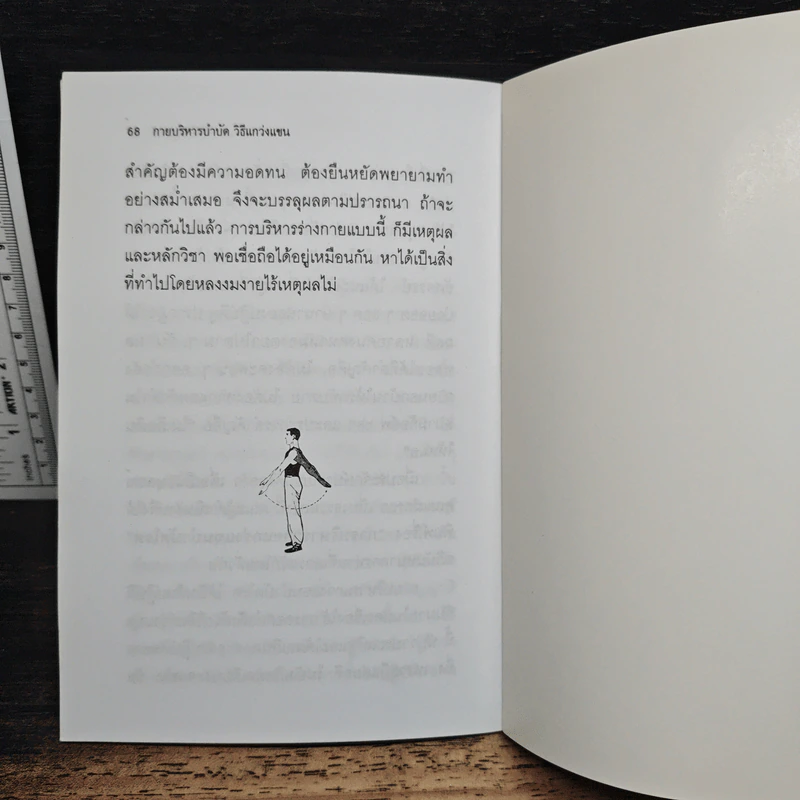 68 กายบริหารบำบัด วิธีแกว่งแขน
สำคัญต้องมีความอดทน ต้องยืนหยัดพยายามทำ
อย่างสม่ำเสมอ จึงจะบรรลุผลตามปรารถนา ถ้าจะ
กล่าวกันไปแล้ว การบริหารร่างกายแบบนี้ ก็มีเหตุผล
และหลักวิชา พอเชื่อถือได้อยู่เหมือนกัน หาได้เป็นสิ่ง
ที่ทำไปโดยหลงงมงายไร้เหตุผลไม่